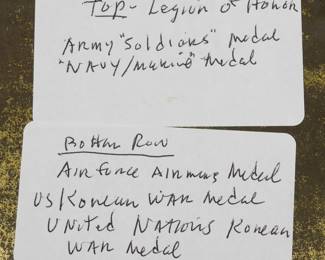 Top- Legion of Honor
Army "Soldiers" Medal
"Navy/Marine" Medal
Bottom Row
Air Force Airmans Medal
US/Korean War Medal
United Nations Korean
War Medal